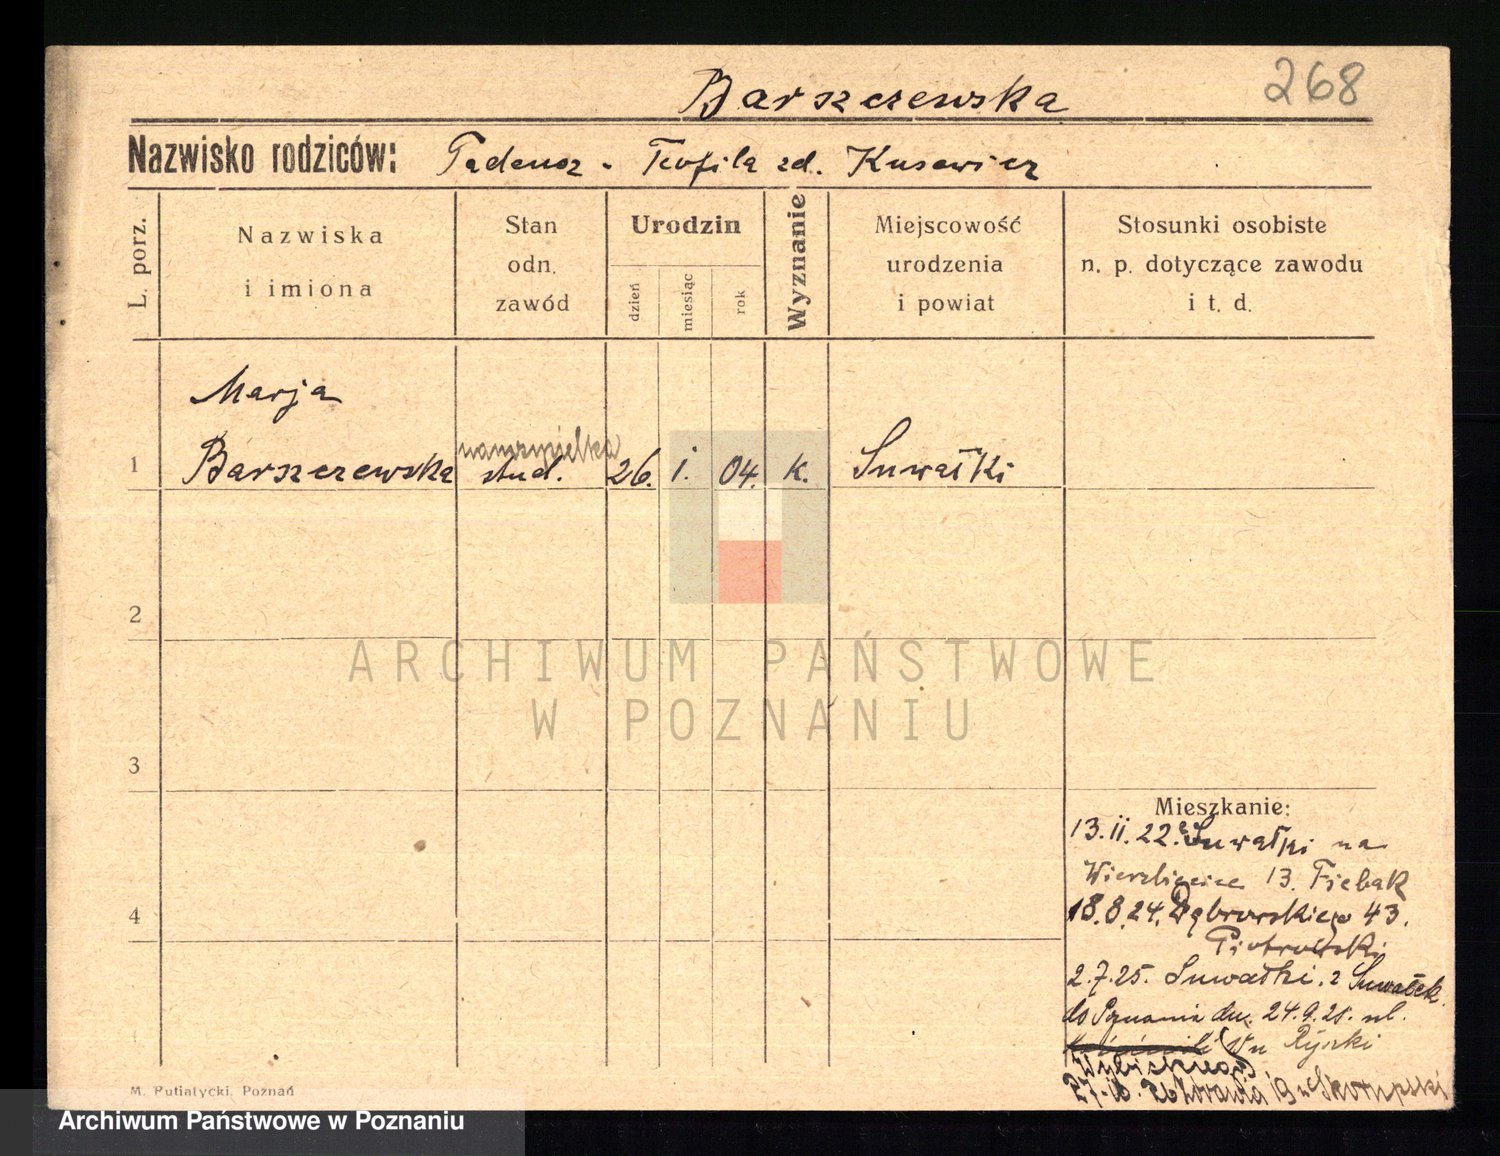 268
Barszczewska
Nazwisko rodziców: Tadeusz - Teofila zd. Kusewicz
L. porz.
Nazwiska
i imiona
Stan
odn.
zawód
Urodzin
dzień
miesiąc
rok
Wyznanie
Miejscowość
urodzenia
i powiat
Stosunki osobiste
n. p. dotyczące zawodu
i t. d.
Marja
nauczycielka
1 Barszczewska stud. 26. i. 04. k. Suwałki
2
ARCHIWUM PAŃSTWOWE
W POZNANIU
3
Mieszkanie:
13.ii.22. Suwałki na
Wierzbięcice 13. Fiebak
4
18.8.24. Dąbrowskiego 43.
Piotrowski
2.7.25. Suwałki. z Suwałek
do Poznania dn. 24.9.25. ul.
Ryszki
Wybickiego
19 Skorupski
M. Putiatycki, Poznań
Archiwum Państwowe w Poznaniu